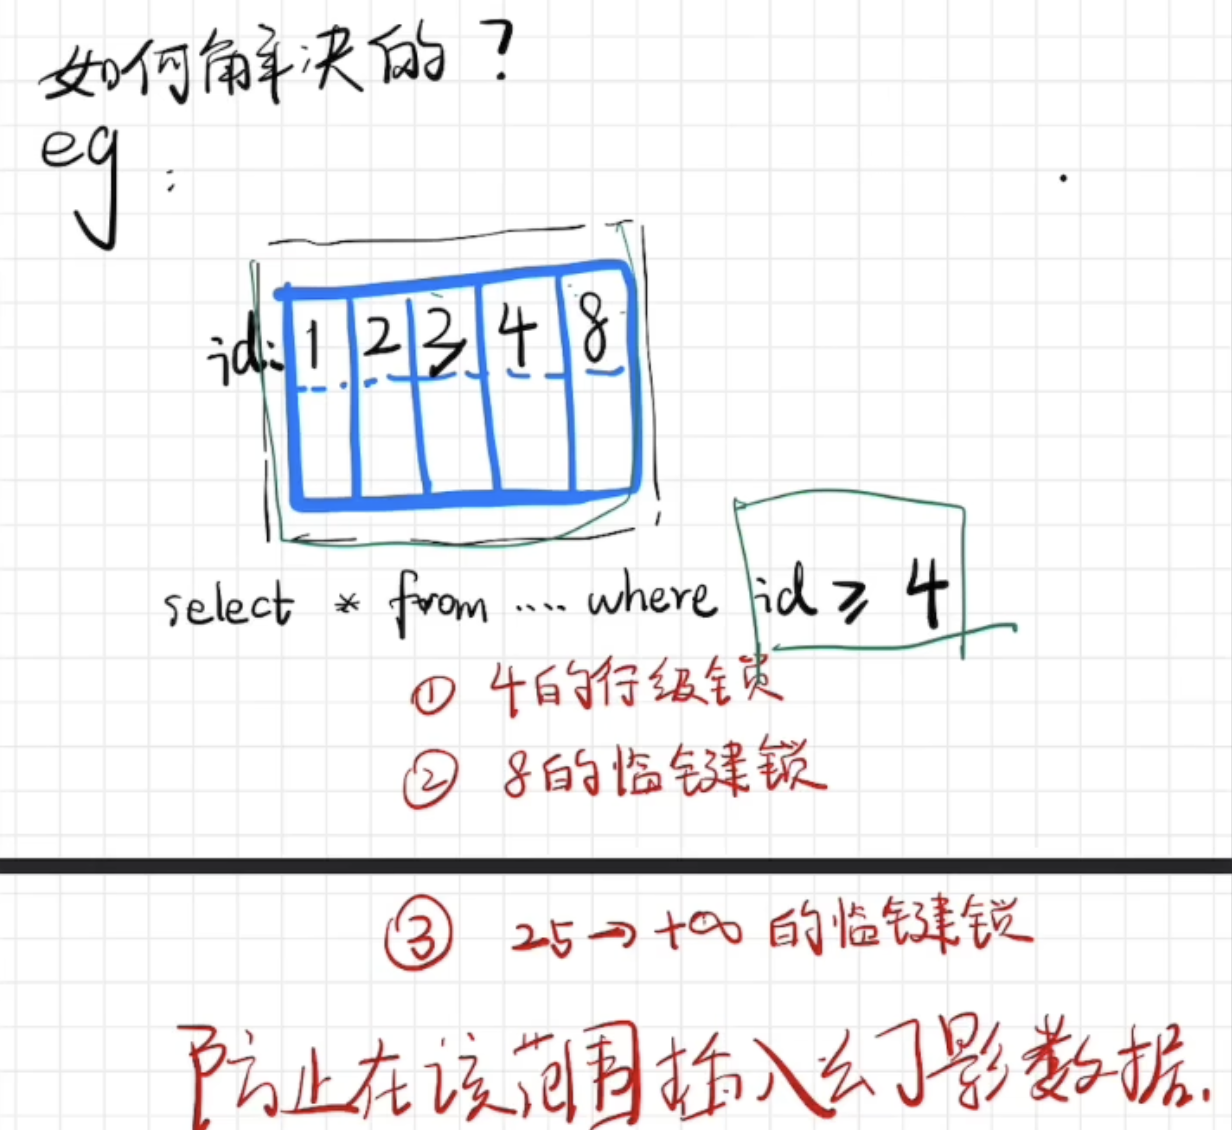 如何解决的？
eg：
id: 1 2 3 4 8
select * from .... where id ≥ 4
① 4的行级锁
② 8的临键锁
③ 25→+∞ 的临键锁
防止在该范围插入幻影数据.